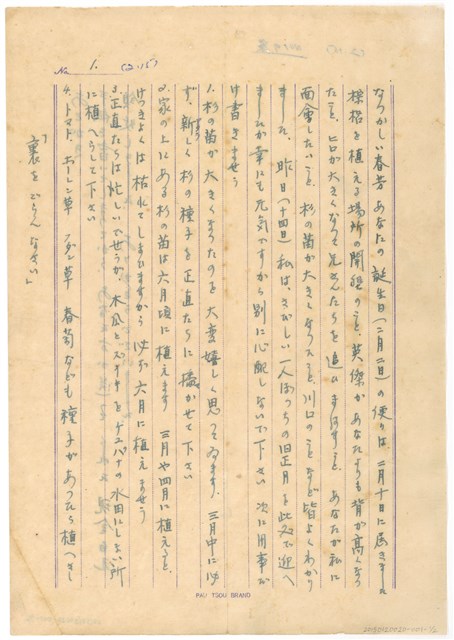 No 1. (2.15)
なつかしい春芳 あなたの誕生日(二月二日)の便りは、二月十日に届きました
桜桃を植える場所の開墾のこと、英傑があなたよりも背が高くなつ
たこと、ヒロが大きくなつて兄さんたちを追ひまはすこと、あなたが私に
面會したいこと、杉の苗が大きくなつたこと、川口のことなど皆よくわかり
ました、昨日(十四日)私は、さびしい一人ぼつちの旧正月を此処で迎へ
ましたが幸にも元気ですから別に心配しないで下さい 次に用事だ
け書きませう
1. 杉の苗が大きくなつたのを大変嬉しく思つてゐます、三月中に必
ず、新しく杉の種子を正直たちに播かせて下さい
2. 家の上にある杉の苗は六月頃に植えます 三月や四月に植えると、
けつきよくは枯れてしまひますから必ず六月に植えませう
3. 正直たちは忙しいでせうが、木瓜とススキをゲユパナの水田によい所
に植へらして下さい
4. トマト、ホーレン草 フダン草 春菊なども種子があつたら植へませ
「裏をごらんなさい」
PAU TSOU BRAND